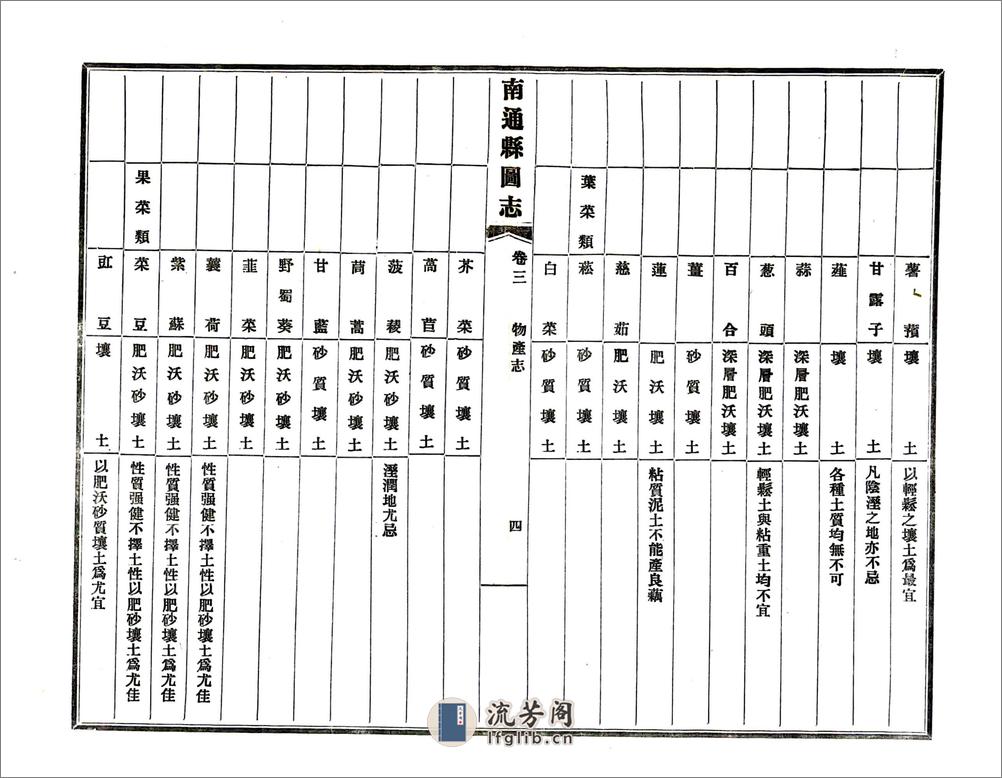 薯蕷 壤土 以輕鬆之壤土爲最宜
甘露子 壤土 凡陰溼之地亦不忌
薤 壤土 各種土質均無不可
蒜 深層肥沃壤土
葱頭 深層肥沃壤土 輕鬆土與粘重土均不宜
百合 深層肥沃壤土
薑 砂質壤土
蓮 肥沃壤土 粘質泥土不能產良藕
慈茹 肥沃壤土
葉菜類 菘 砂質壤土
白菜 砂質壤土
南通縣圖志 卷三 物產志 四
芥菜 砂質壤土
萵苣 砂質壤土
菠薐 肥沃砂壤土 溼潤地尤忌
茼蒿 肥沃砂壤土
甘藍 砂質壤土
野蜀葵 肥沃砂壤土
韮菜 肥沃砂壤土
蘘荷 肥沃砂壤土 性質强健不擇土性以肥砂壤土爲尤佳
紫蘇 肥沃砂壤土 性質强健不擇土性以肥砂壤土爲尤佳
果菜類 菜豆 肥沃砂壤土 性質强健不擇土性以肥砂壤土爲尤佳
豇豆 壤土 以肥沃砂質壤土爲尤宜
流芳阁
lfglib.cn